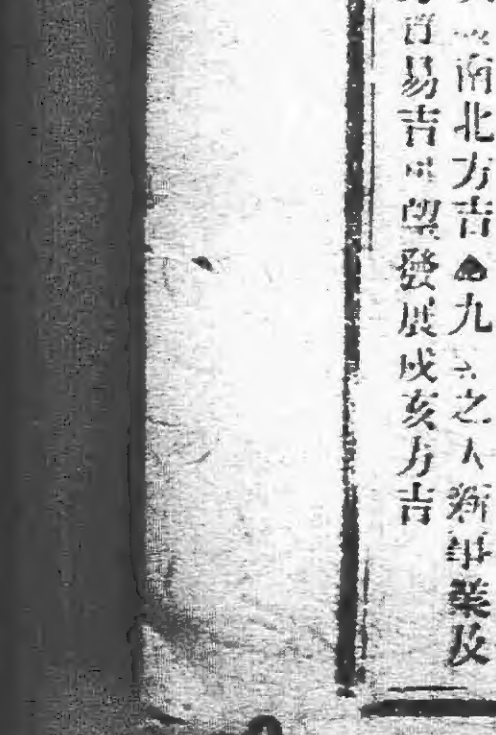 南北方吉▲九之人新事業及
易吉可望發展戌亥方吉